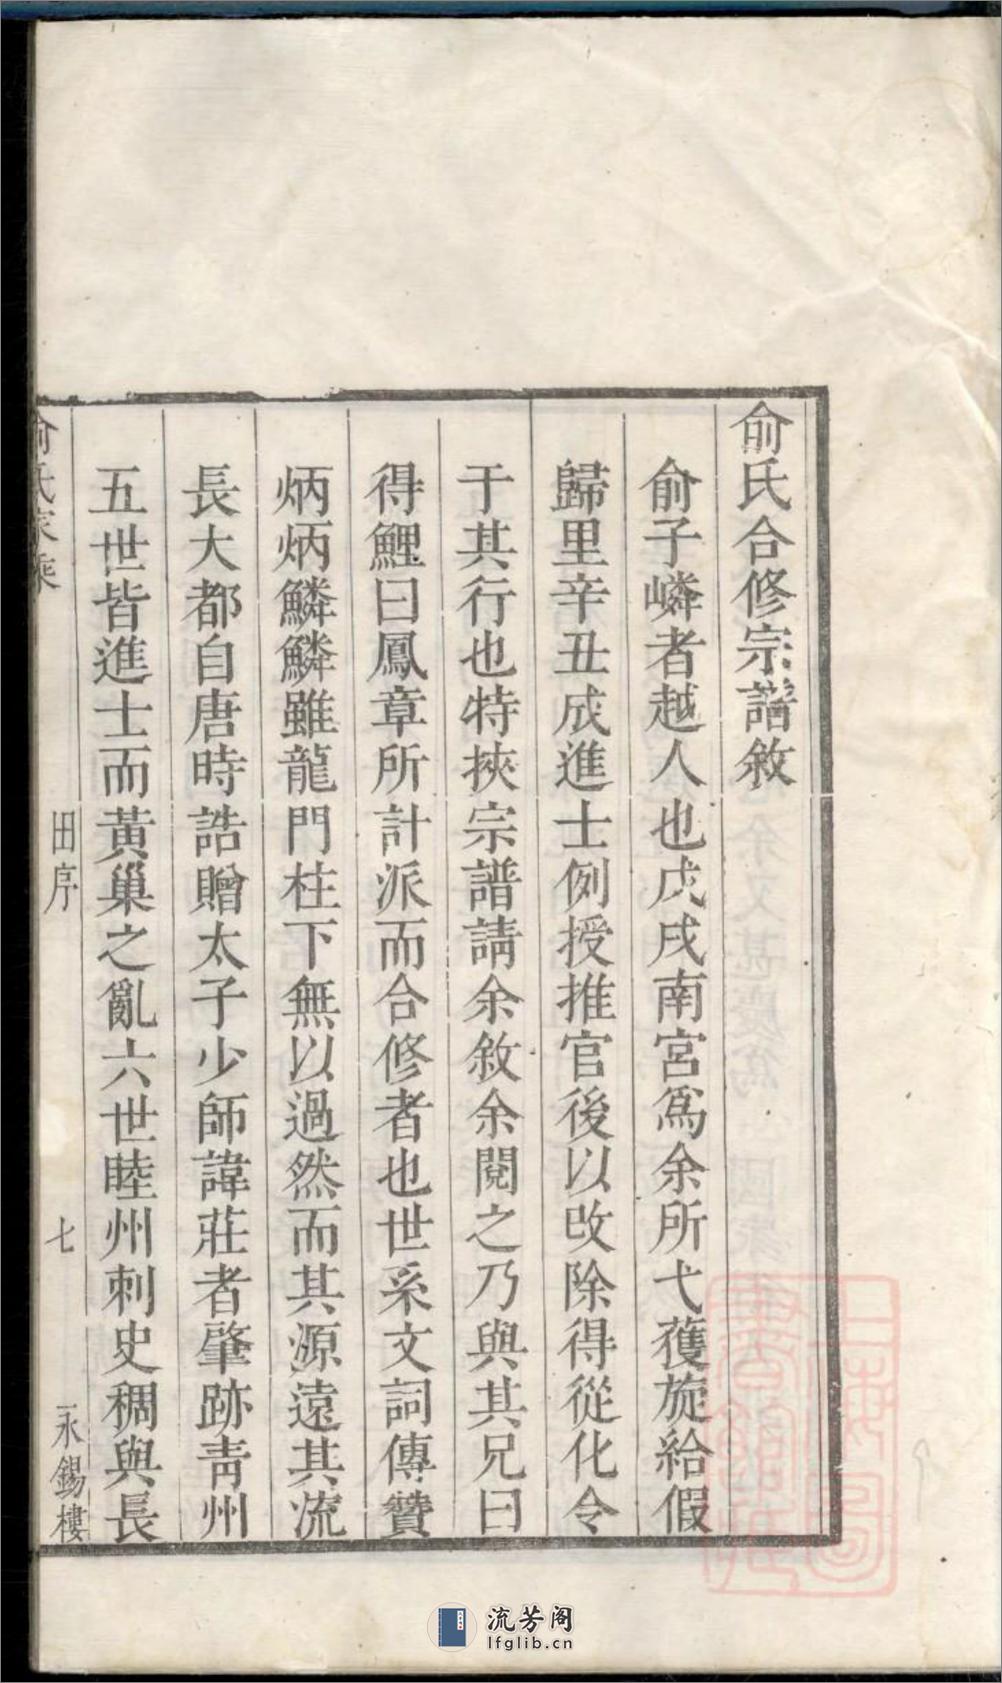 俞氏合修宗譜敘
俞子嶙者越人也戊戌南宮爲余所弋獲旋給假
歸里辛丑成進士例授推官後以改除得從化令
于其行也特挾宗譜請余敘余閱之乃與其兄曰
得鯉曰鳳章所計派而合修者也世系文詞傳贊
炳炳鱗鱗雖龍門柱下無以過然而其源遠其流
長大都自唐時誥贈太子少師諱莊者肇跡靑州
五世皆進士而黃巢之亂六世睦州刺史稠與長
俞氏家乘
田序
七
永錫樓
流芳阁
lfglib.cn